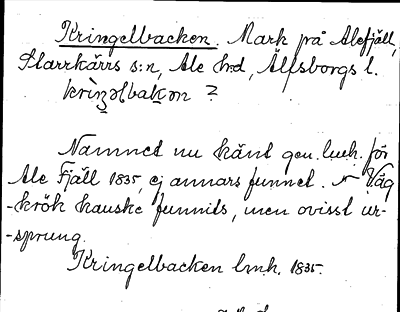 Kringelbacken. Mark på Alefjäll,
Starrkärrs s:n, Ale hd, Älfsborgs l.
krìŋəlbakən ?
Namnet nu känt gen. lmh. för
Ale Fjäll 1835, ej annars funnet. Väg
-krök kanske funnits, men ovisst ur-
-sprung.
Kringelbacken lmh. 1835.